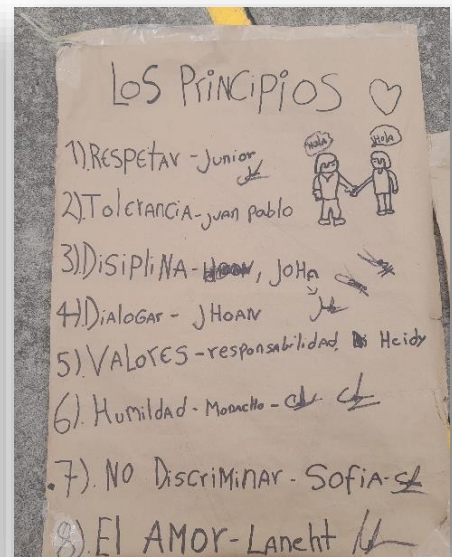 Los Principios
Hola
Hola
1). RESPETAr - Junior
2). Tolerancia - juan pablo
3). DISIPLINA - , JOHA
4). DIALOGAr - JHOAN
5). VALORES - responsabilidad Heidy
6). Humildad - Monacho -
7). NO DiscrIMINAr - SOFIA -
8). El AMOR - Laneht